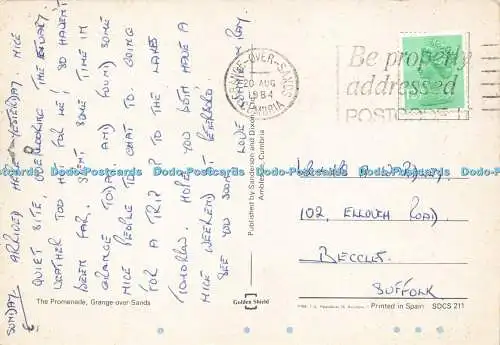 SUNDAY. ARRIVED HERE YESTERDAY. NICE
QUIET SITE, OVERLOOKING THE ESTUARY.
WEATHER TOO HOT FOR ME! SO HAVEN'T
BEEN FAR. SPENT SOME TIME IN
GRANGE TODAY AND FOUND SOME
NICE PEOPLE TO CHAT TO. GOING
FOR A TRIP UP TO THE LAKES
TOMORROW. HOPE YOU BOTH HAVE A
NICE WEEKEND AT
SEE YOU SOON. LOVE RAY.
The Promenade, Grange-over-Sands
Published by Sanderson and Dixon,
Ambleside, Cumbria
Golden Shield
GRANGE-OVER-SANDS
20 AUG
1984
CUMBRIA
Be properly
addressed
POSTCODE IT
102, ELLOUGH ROAD,
BECCLES,
SUFFOLK
Printed in Spain SDCS 211
Dodo-Postcards Dodo-Postcards Dodo-Postcards Dodo-Postcards
Dodo-Postcards Dodo-Postcards Dodo-Postcards Dodo-Postcards